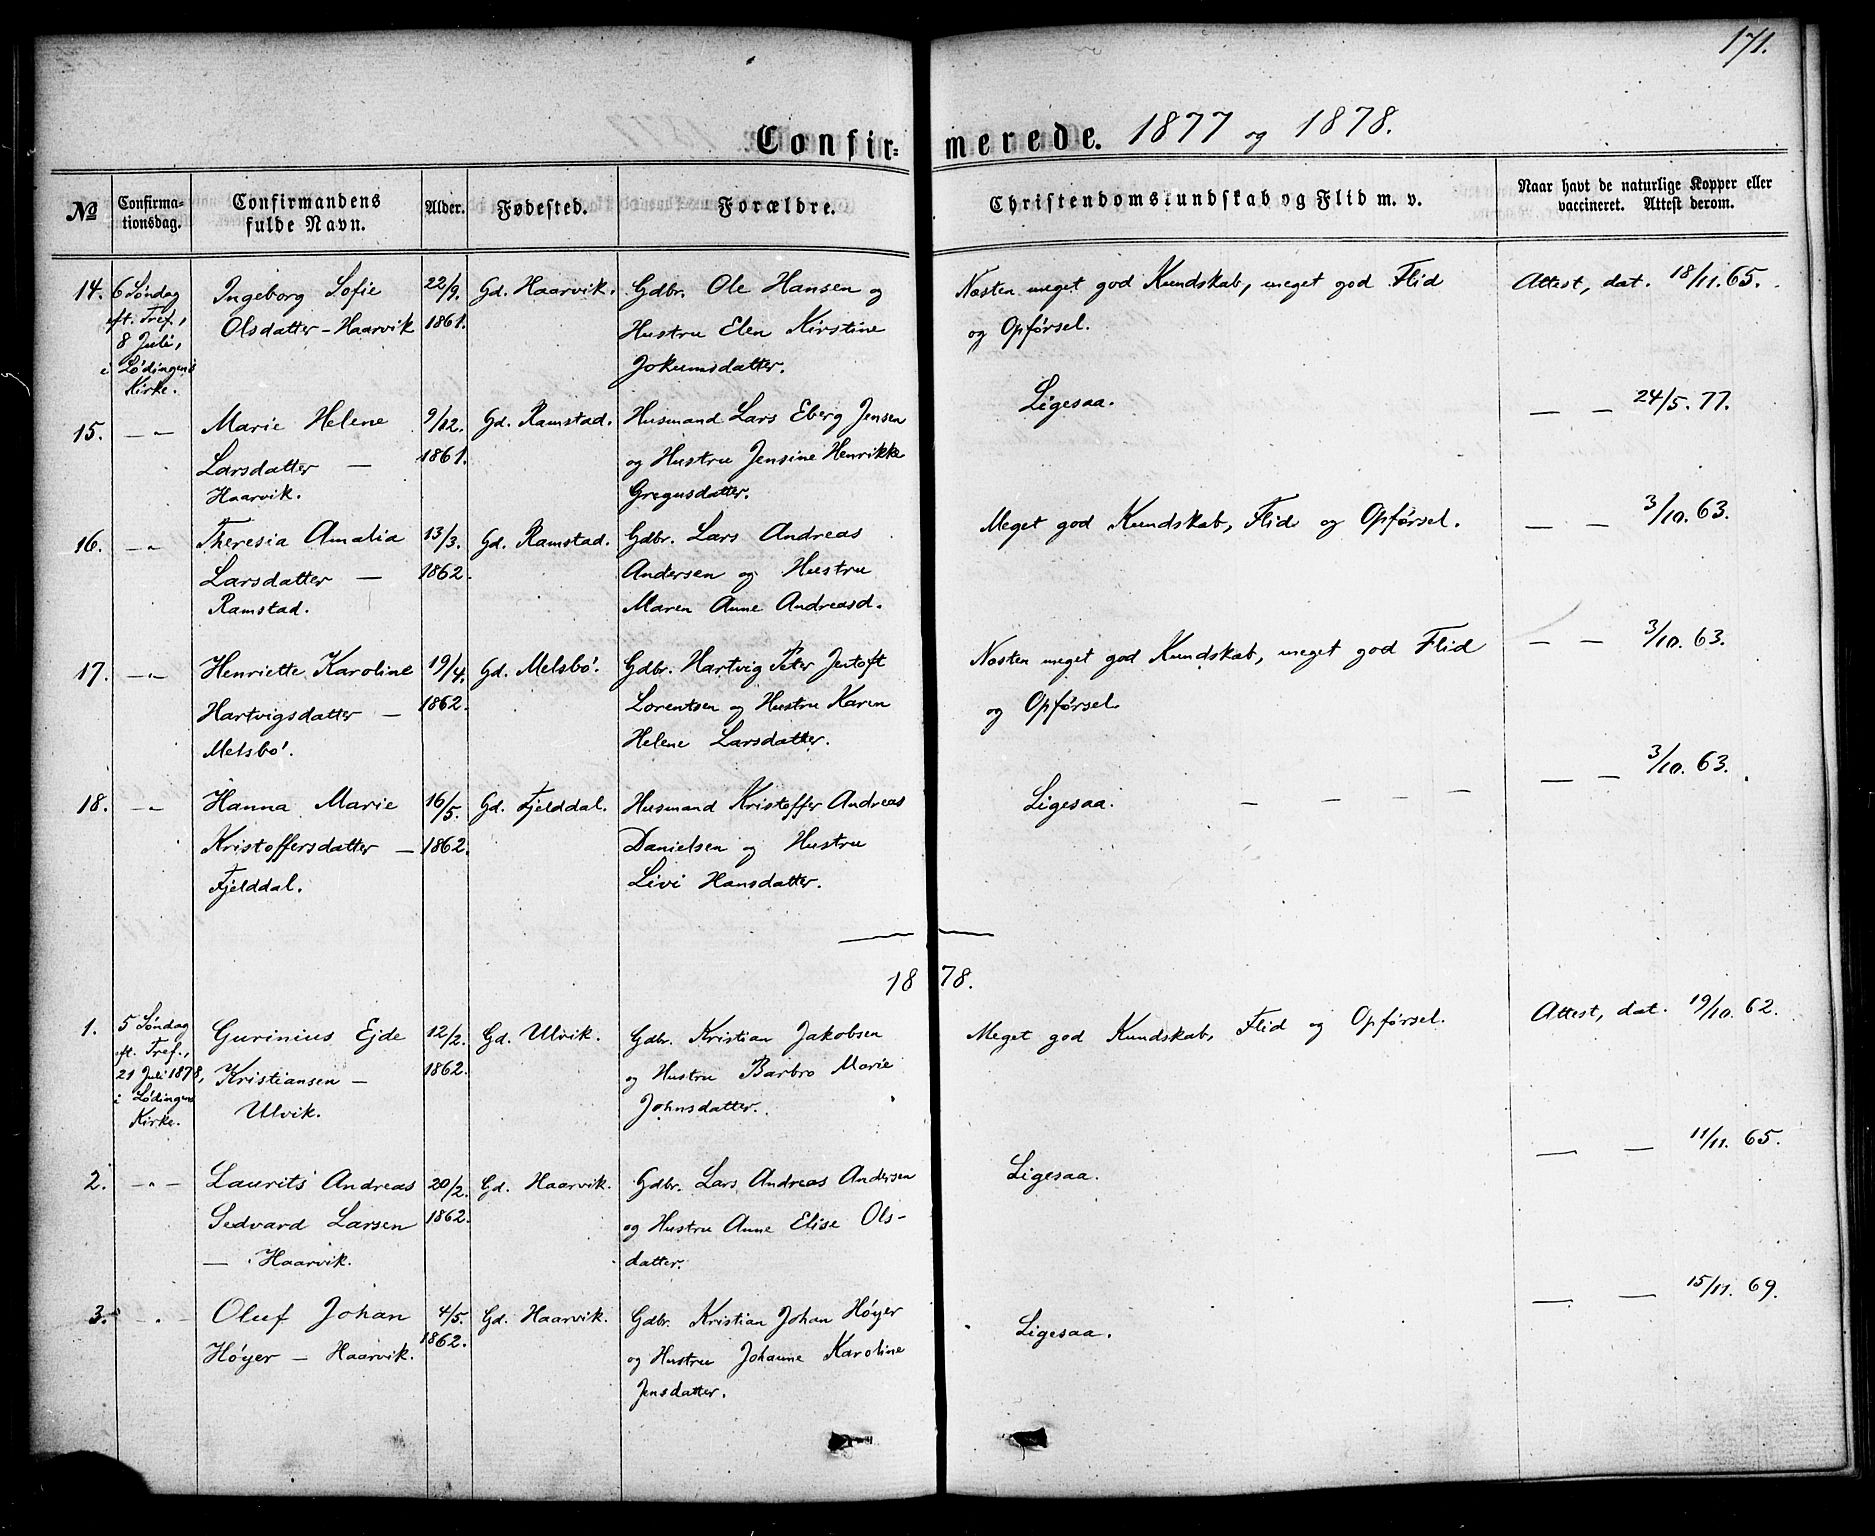 171.
Confirmerede. 1877 og 1878.
No
Confirma-
tionsdag.
Confirmandens
fulde Navn.
Alder.
Fødested.
Forældre.
Christendomskundskab og Flid m. v.
Naar havt de naturlige Kopper eller
vaccineret. Attest derom.
14. 6 Søndag
eft. Tref.,
8 Juli,
i Lødingens
Kirke.
Ingeborg Sofie
Olsdatter - Haarvik
22/9.
1861.
Gd. Haarvik.
Gdbr. Ole Hansen og
Hustru Elen Kirstine
Jokumsdatter.
Næsten meget god Kundskab, meget god Flid
og Opførsel.
Attest, dat. 18/11. 65.
15. — " —
Marie Helene
Larsdatter —
Haarvik.
9/12.
1861.
Gd. Ramstad.
Husmand Lars Eberg Jensen
og Hustru Jensine Henrikke
Gregusdatter.
Ligesaa.
— — 24/5. 77.
16. — " —
Theresia Amalia
Larsdatter —
Ramstad.
13/3.
1862.
Gd. Ramstad.
Gdbr. Lars Andreas
Andersen og Hustru
Maren Anne Andreasd.
Meget god Kundskab, Flid og Opførsel.
— — 3/10. 63.
17. — " —
Henriette Karoline
Hartvigsdatter —
Melsbø.
19/4.
1862.
Gd. Melsbø.
Gdbr. Hartvig Peter Jentoft
Lorentsen og Hustru Karen
Helene Larsdatter.
Næsten meget god Kundskab, meget god Flid
og Opførsel.
— — 3/10. 63.
18. — " —
Hanna Marie
Kristoffersdatter —
Fjelddal.
16/5.
1862.
Gd. Fjelddal.
Husmand Kristoffer Andreas
Danielsen og Hustru
Livi Hansdatter.
Ligesaa. — — — —
— — 3/10. 63.
1878.
1. 5 Søndag
eft. Tref.,
21 Juli 1878,
i Lødingens
Kirke.
Gurinius Ejde
Kristiansen —
Ulvik.
12/2.
1862.
Gd. Ulvik.
Gdbr. Kristian Jakobsen
og Hustru Barbro Marie
Johnsdatter.
Meget god Kundskab, Flid og Opførsel.
Attest, dat. 19/10. 62.
2. — " —
Laurits Andreas
Sedvard Larsen
— Haarvik.
20/2.
1862.
Gd. Haarvik.
Gdbr. Lars Andreas Andersen
og Hustru Anne Elise Ols-
datter.
Ligesaa.
— — 11/11. 65.
3. — " —
Oluf Johan
Høyer — Haarvik.
4/5.
1862.
Gd. Haarvik.
Gdbr. Kristian Johan Høyer
og Hustru Johanne Karoline
Jensdatter.
Ligesaa.
— — 15/11. 69.